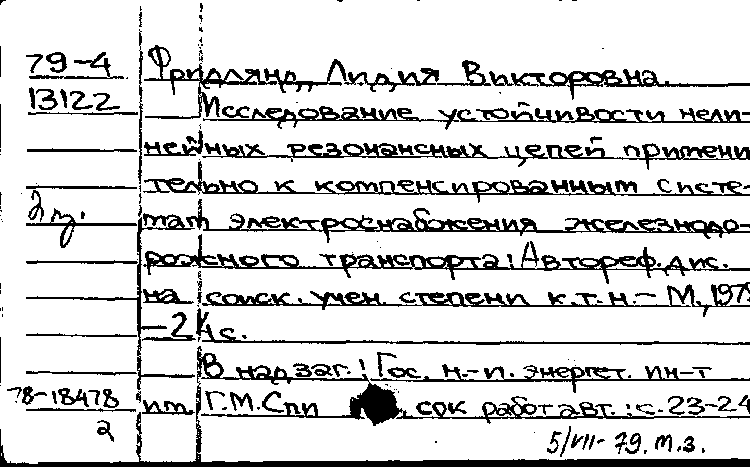 79-4 Фридлянд, Лидия Викторовна.
13122 Исследование устойчивости нели-
нейных резонансных цепей примени
тельно к компенсированным систе-
2 эз. мам электроснабжения железнодо-
рожного транспорта: Автореф. дис.
на соиск. учен. степени к.т.н. - М., 1979
- 24 с.
В надзаг.: Гос. н.-и. энергет. ин-т
78-18478 им. Г.М. , сок работ авт.: с. 23-24
2
5/VII-79. м.з.